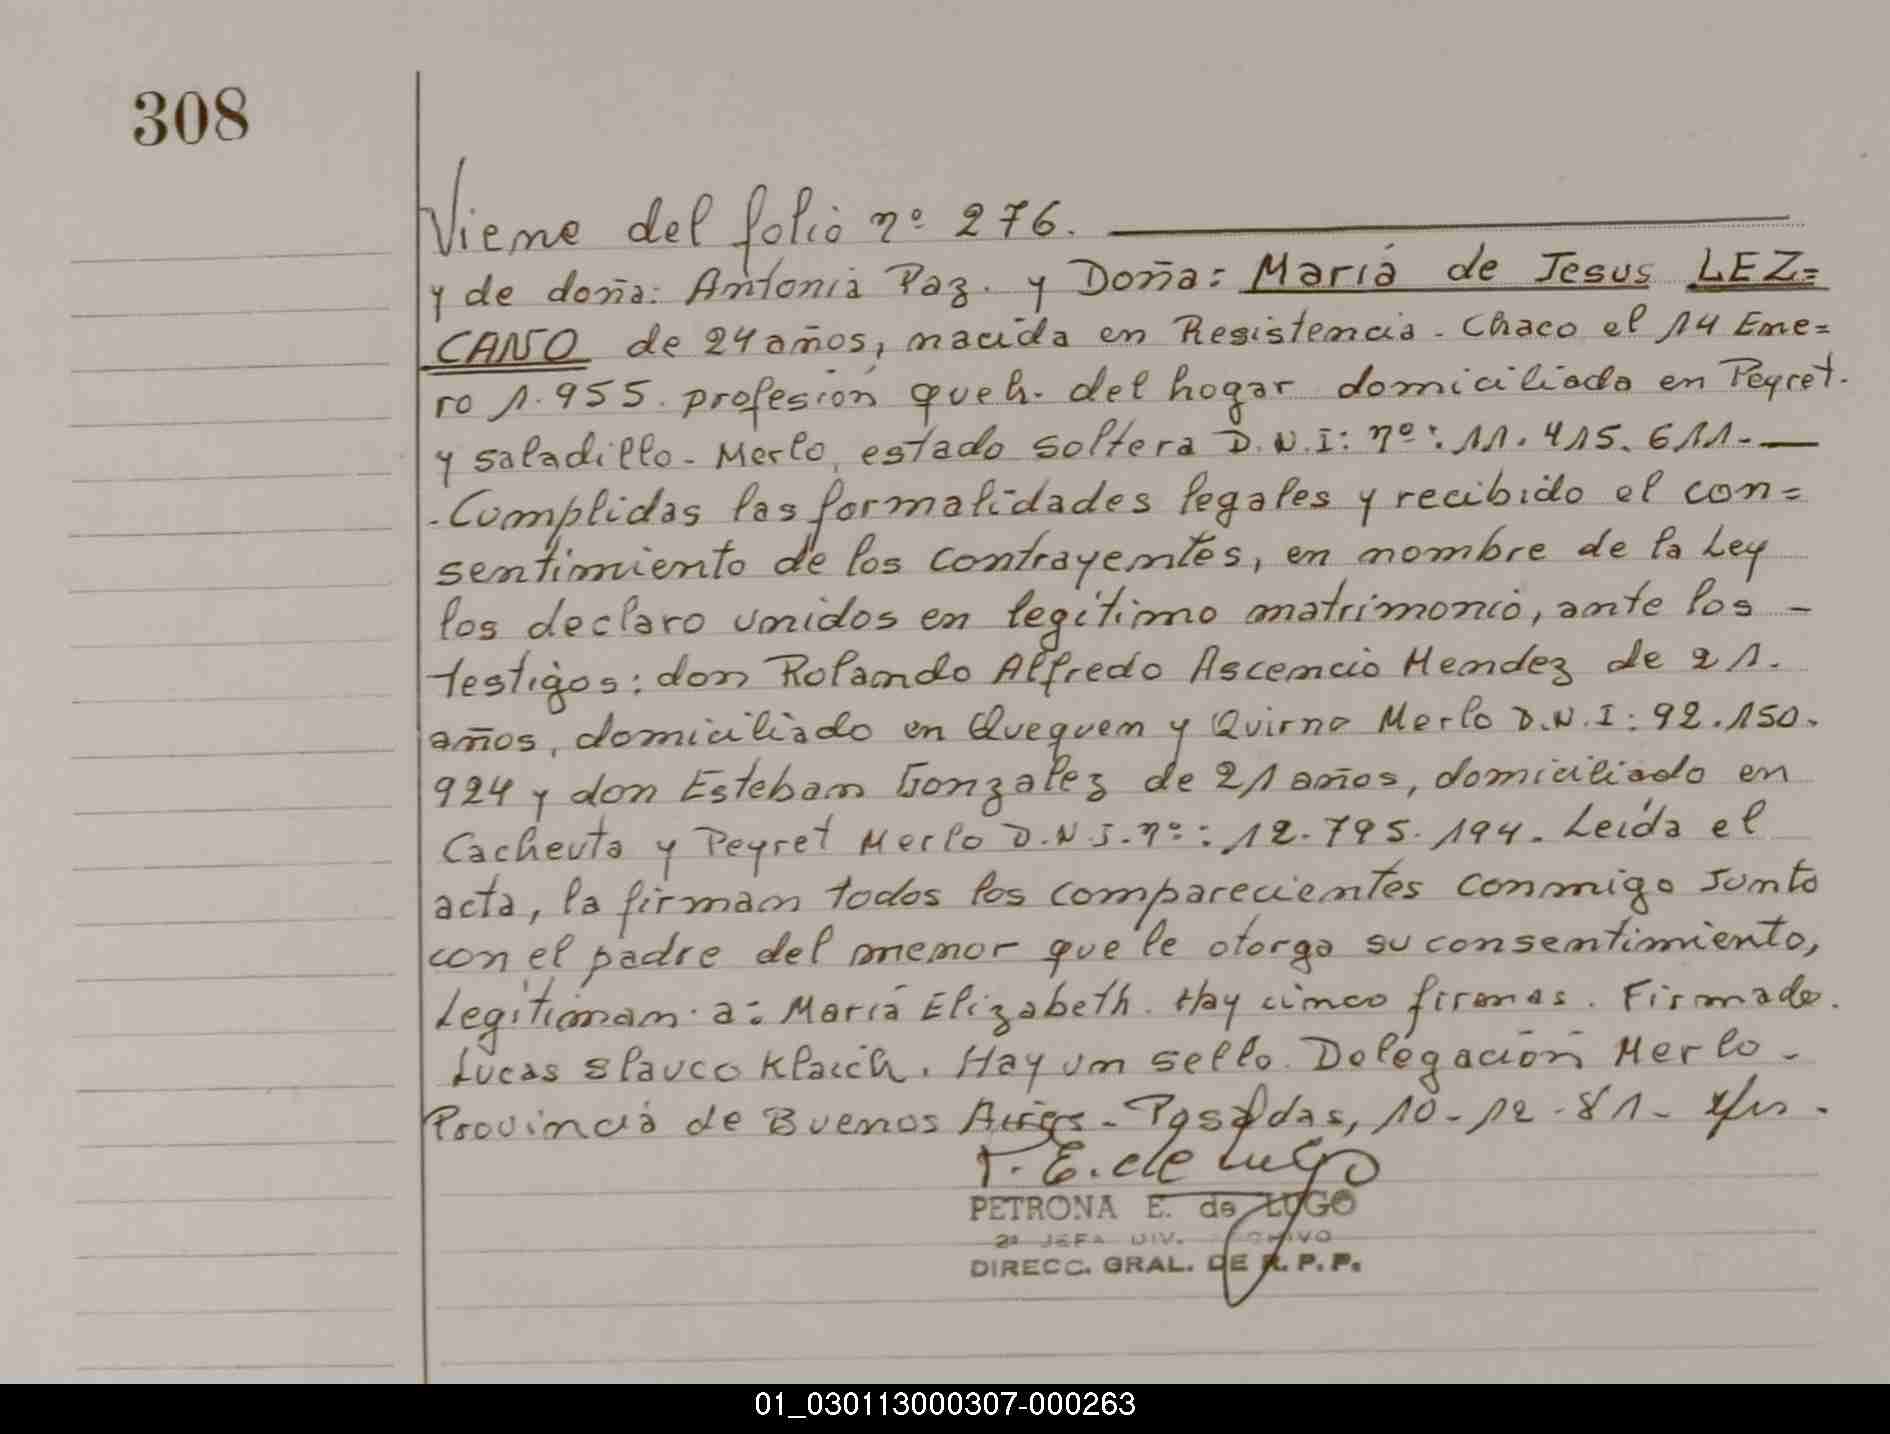 308
Viene del folio nº 276.
y de doña: Antonia Paz. y Doña: María de Jesus LEZ=
CANO de 24 años, nacida en Resistencia - Chaco el 14 Ene=
ro 1.955. profesión queh. del hogar domiciliada en Peyret.
y saladillo - Merlo, estado soltera D.N.I: nº: 11.415.611.-
- Cumplidas las formalidades legales y recibido el con=
sentimiento de los contrayentes, en nombre de la Ley
los declaro unidos en legítimo matrimonio, ante los -
testigos: don Rolando Alfredo Ascencio Mendez de 21.
años, domiciliado en Quequen y Quirno Merlo D.N.I: 92.150.
924 y don Esteban Gonzalez de 21 años, domiciliado en
Cacheuta y Peyret Merlo D.N.I. nº: 12.795.194. Leída el
acta, la firman todos los comparecientes conmigo Junto
con el padre del menor que le otorga su consentimiento,
Legitiman a: María Elizabeth. Hay cinco firmas. Firmado.
Lucas Slauco Klaich. Hay un sello. Delegación Merlo -
Provincia de Buenos Aires - Posadas, 10-12-81-
P. E. de Lugo
PETRONA E. de LUGO
2ª JEFA DIV. ARCHIVO
DIRECC. GRAL. DE R.P.P.
01_030113000307-000263